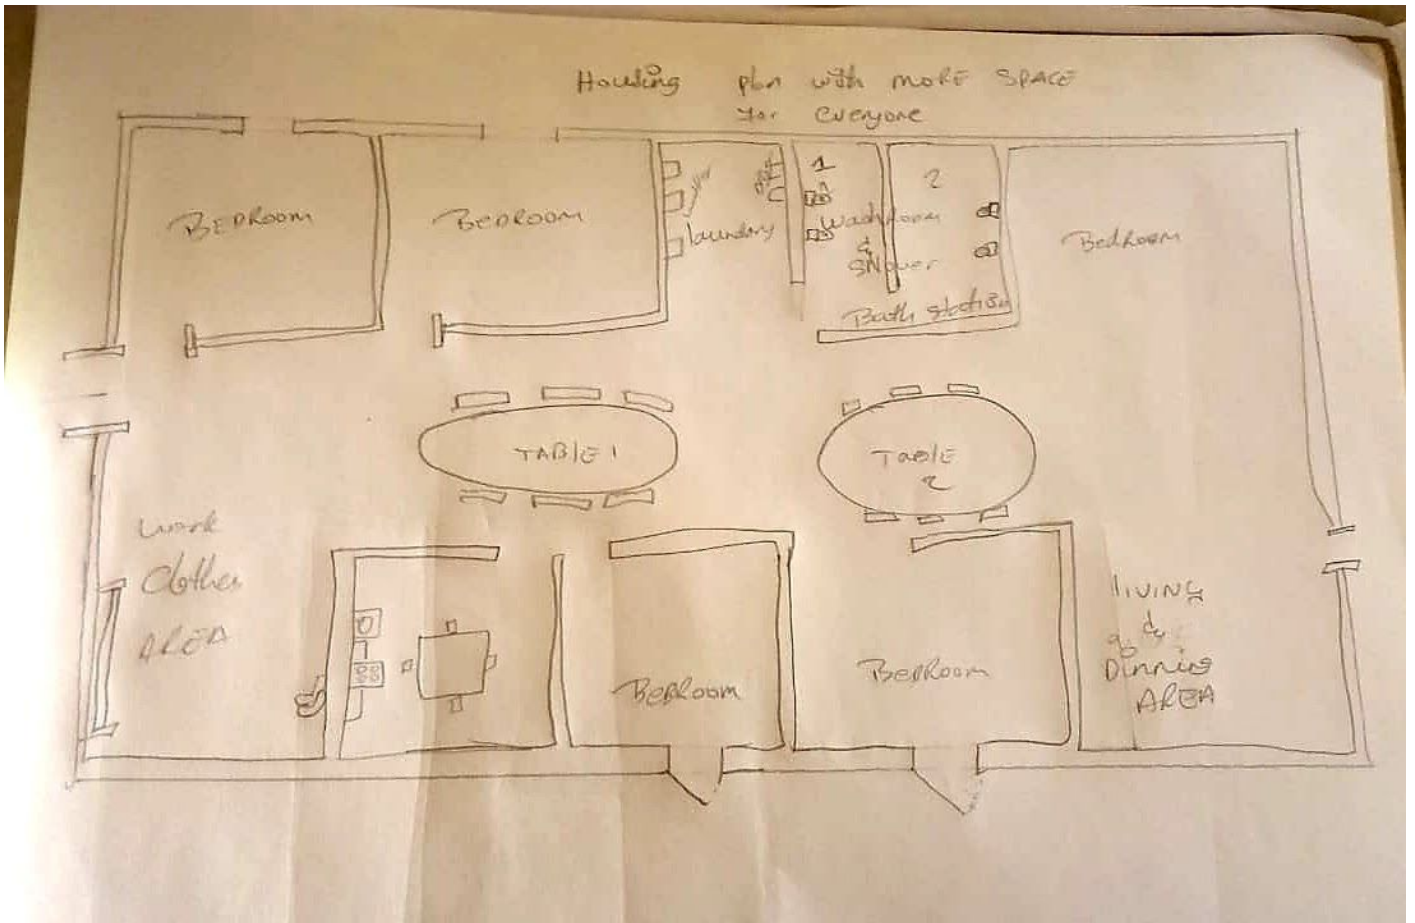 Housing plan with MORE SPACE
for everyone
BEDROOM
BEDROOM
laundry
1
2
Washroom
&
Shower
Bath station
BedRoom
TABLE 1
TABLE
2
work
Clothes
AREA
BEDROOM
BEDROOM
LIVING
&
Dinning
AREA